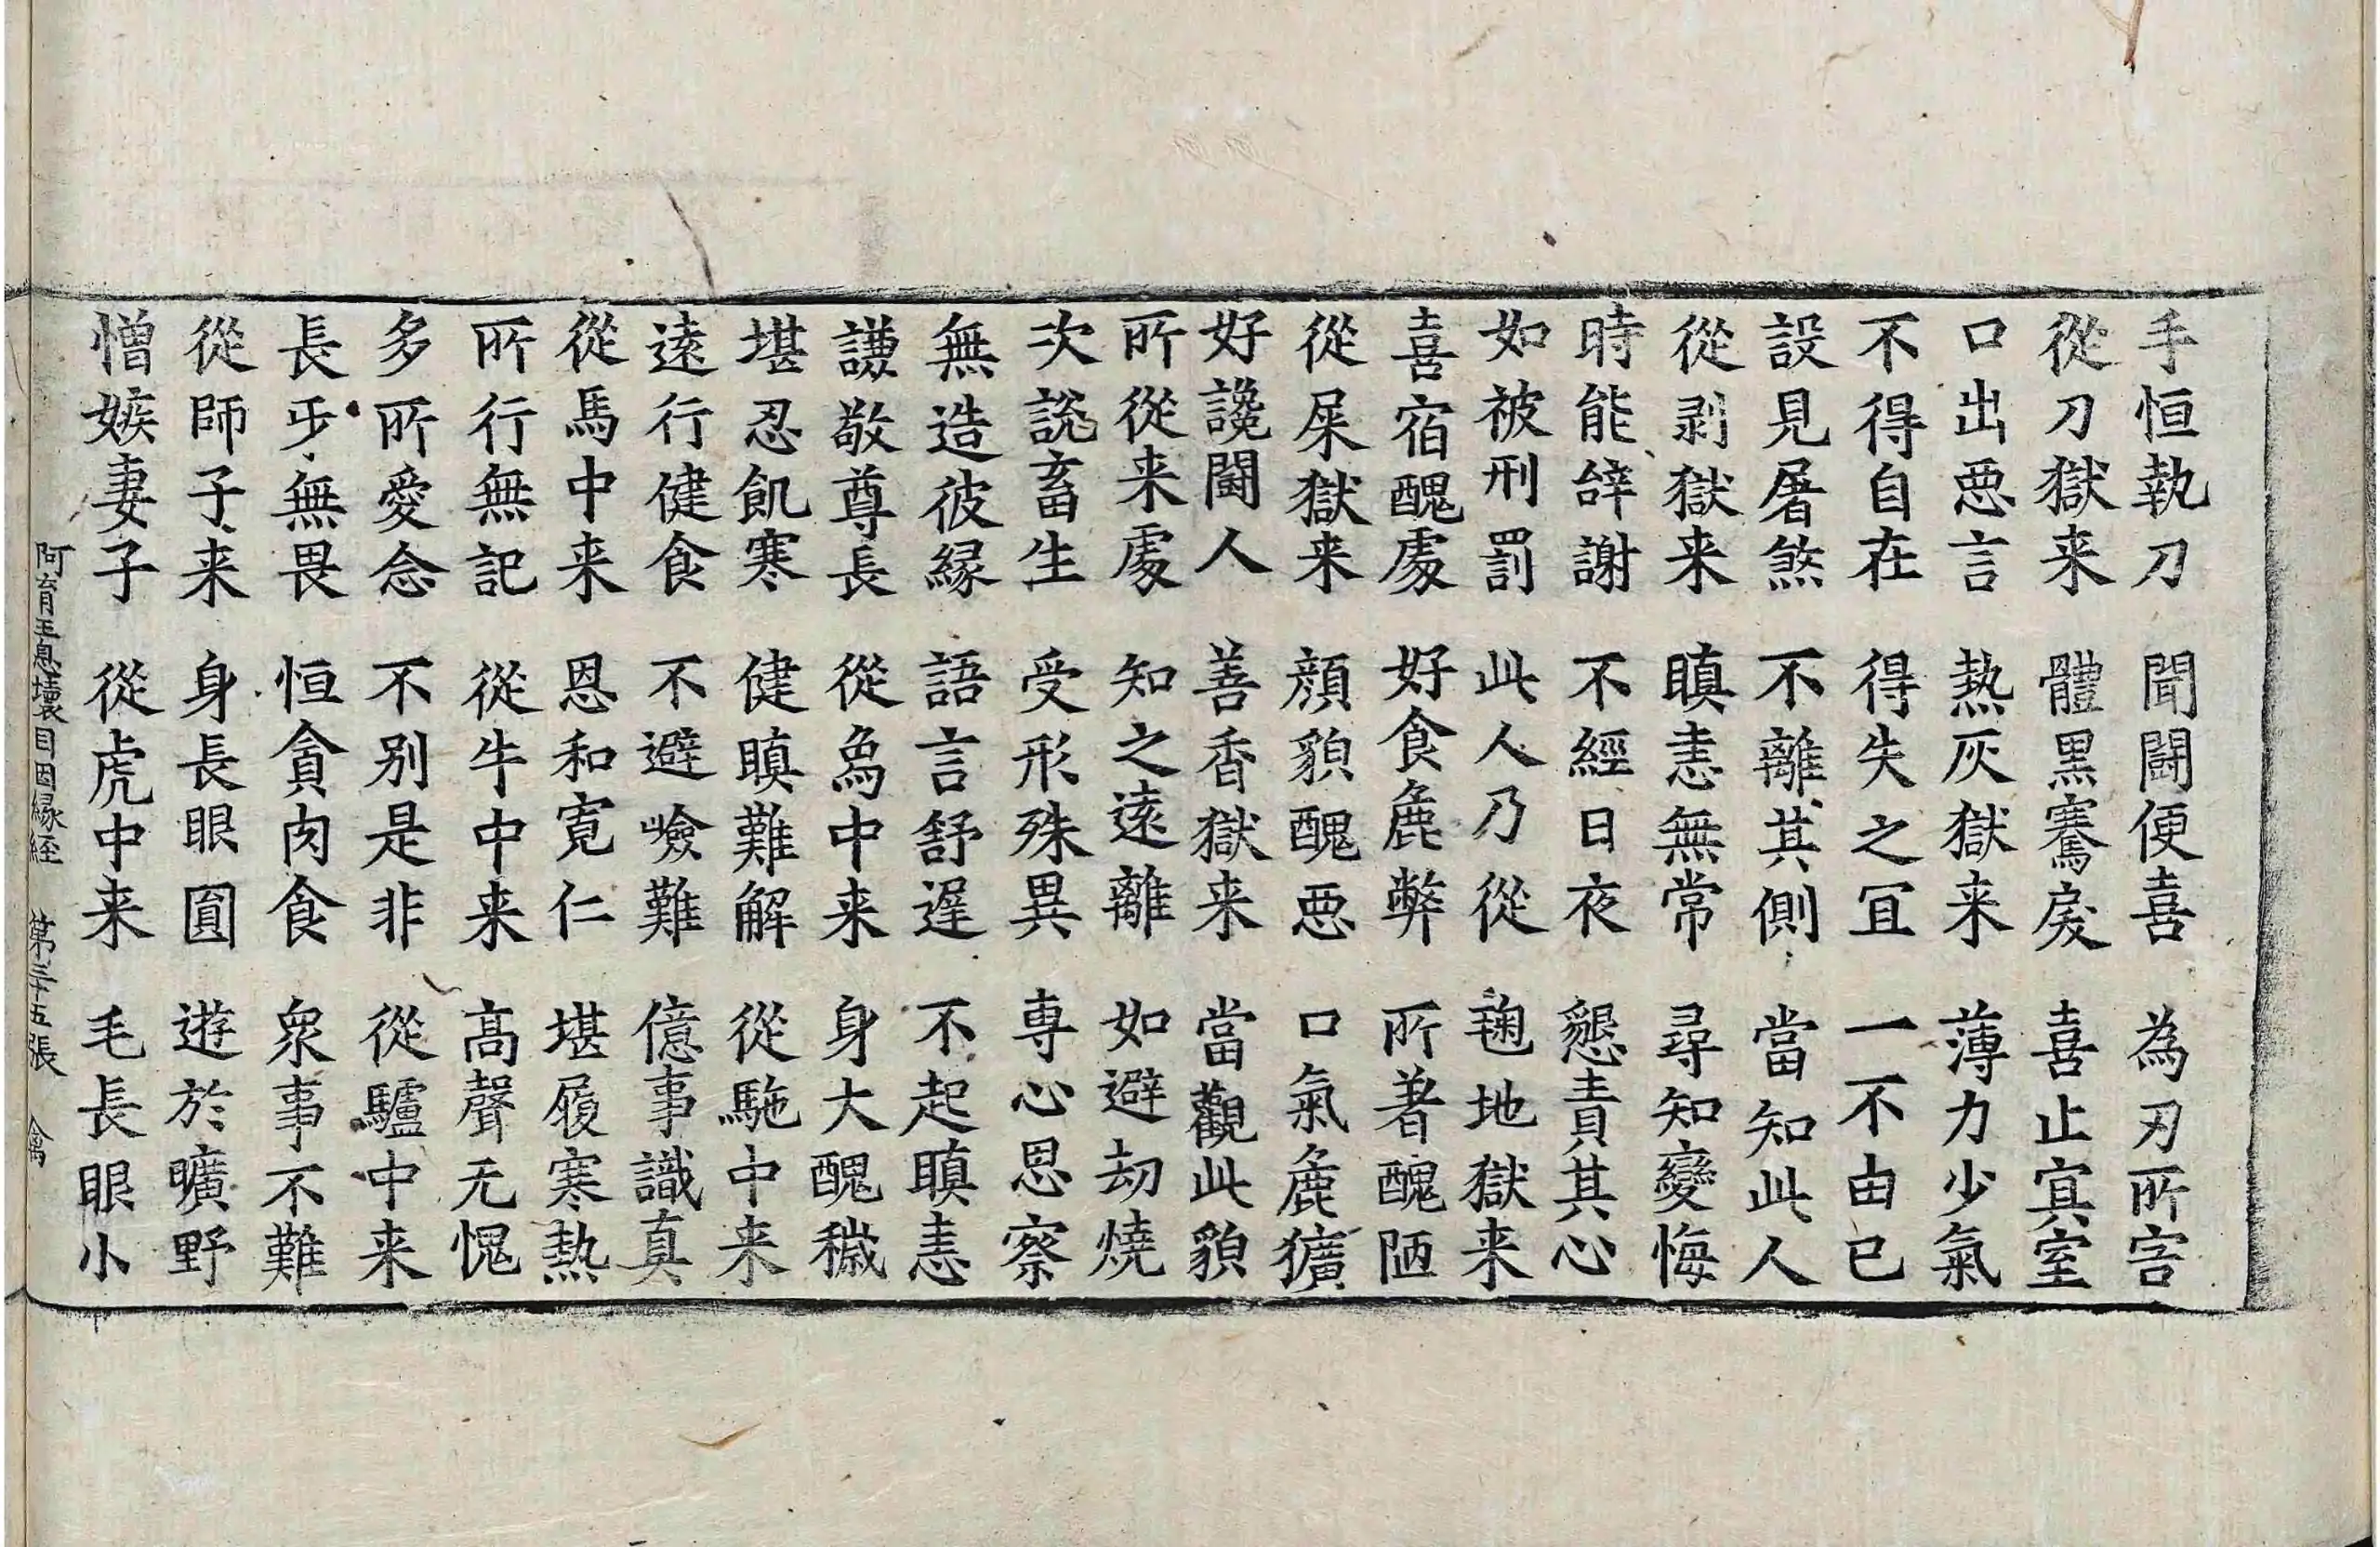 手恒執刀 聞闘便喜 為刃所害
從刀獄来 體黒騫戾 喜止冥室
口出惡言 熱灰獄来 薄力少氣
不得自在 得失之冝 一不由已
設見屠煞 不離其側 當知此人
從剥獄来 瞋恚無常 尋知變悔
時能辞謝 不經日夜 懇責其心
如被刑罰 此人乃從 𨋽地獄来
喜宿醜處 好食麁弊 所著醜陋
從屎獄来 顔貌醜惡 口氣麁獷
好讒鬪人 善香獄来 當觀此貌
所從来處 知之遠離 如避劫燒
次說畜生 受形殊異 専心思察
無造彼縁 語言舒遅 不起瞋恚
謙敬尊長 從烏中来 身大醜穢
堪忍飢寒 健瞋難解 從駞中来
遠行健食 不避嶮難 億事識真
從馬中来 恩和寛仁 堪履寒熱
所行無記 從牛中来 髙聲无愧
多所愛念 不别是非 從驢中来
長㱔無畏 恒貪肉食 衆事不難
從師子来 身長眼圓 遊於曠野
憎嫉妻子 從虎中来 毛長眼小
阿育王息壞目因縁経 第三十五張 禽